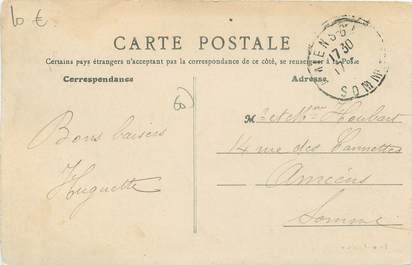 10 €
CARTE POSTALE
Certains pays étrangers n'acceptent pas la correspondance de ce côté, se renseigner à la Poste
Correspondance
Adresse
AMIENS
17 30
SOMME
M
Bons baisers
Huguette
14 rue des
Amiens
Somme